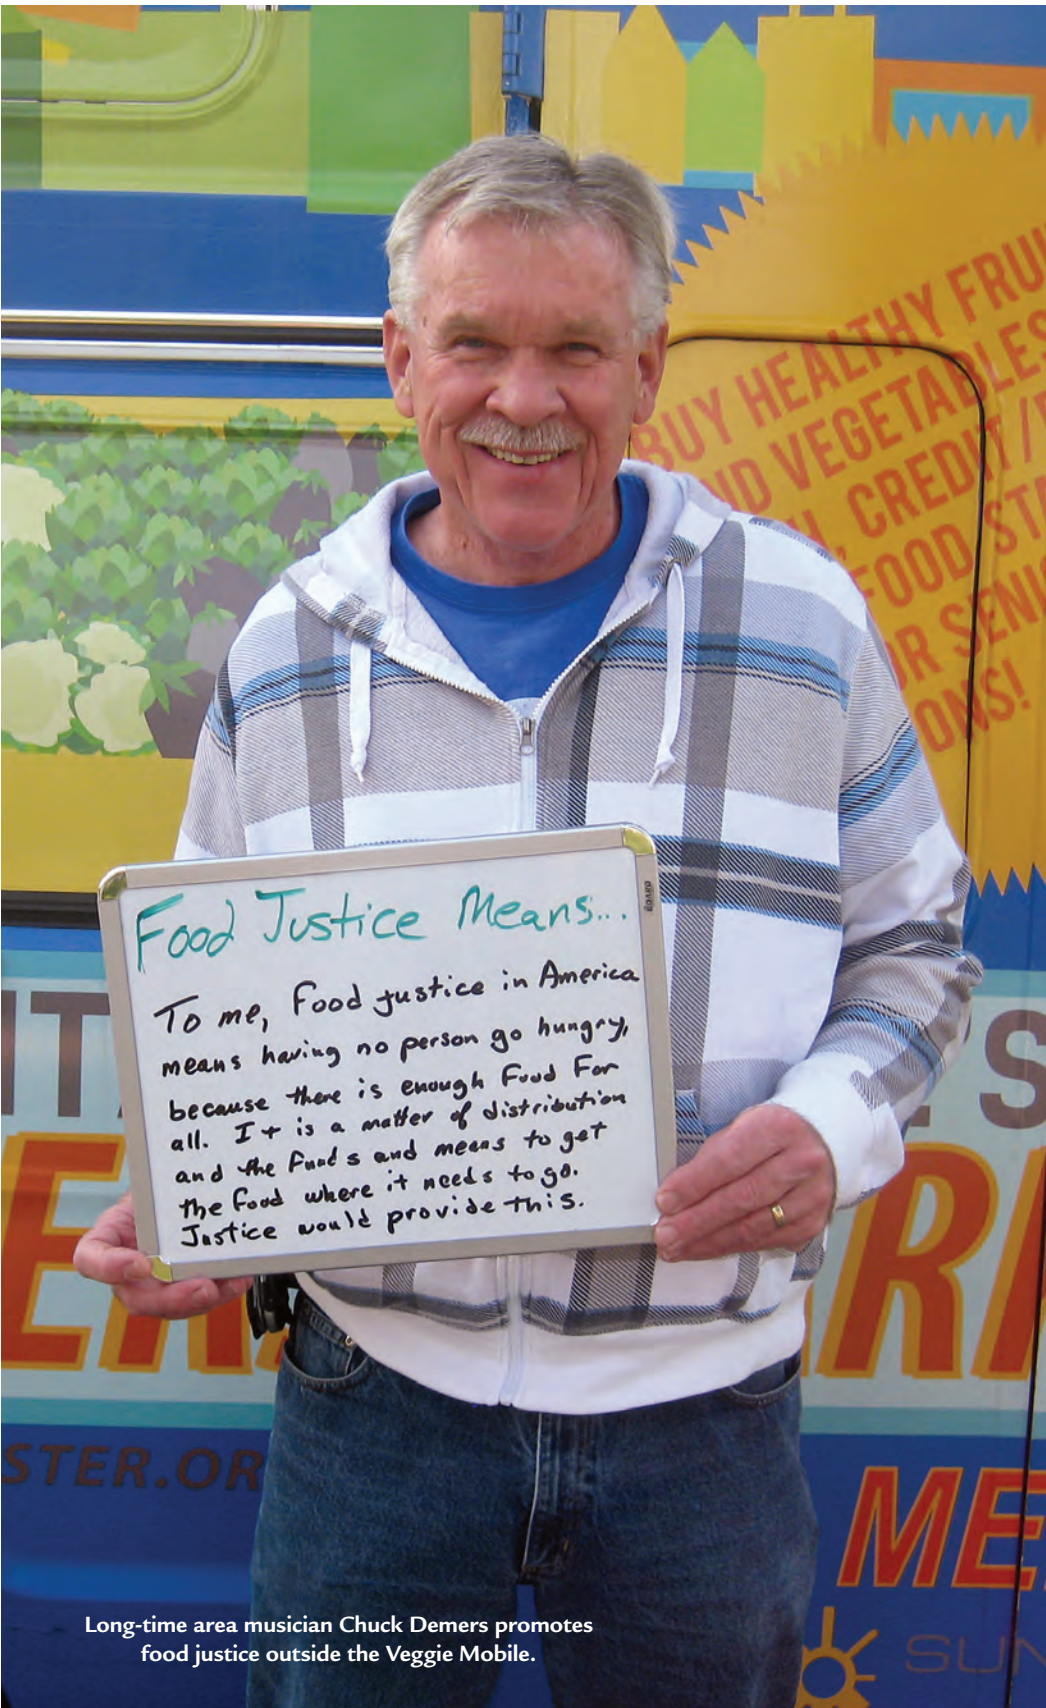 BUY HEALTHY
VEGETABLES
CREDIT /
FOOD
ONS!
Food Justice Means...
To me, Food justice in America
means having no person go hungry,
because there is enough Food For
all. It is a matter of distribution
and the funds and means to get
the food where it needs to go.
Justice would provide this.
S
STER.OR
ME
SUN
Long-time area musician Chuck Demers promotes
food justice outside the Veggie Mobile.